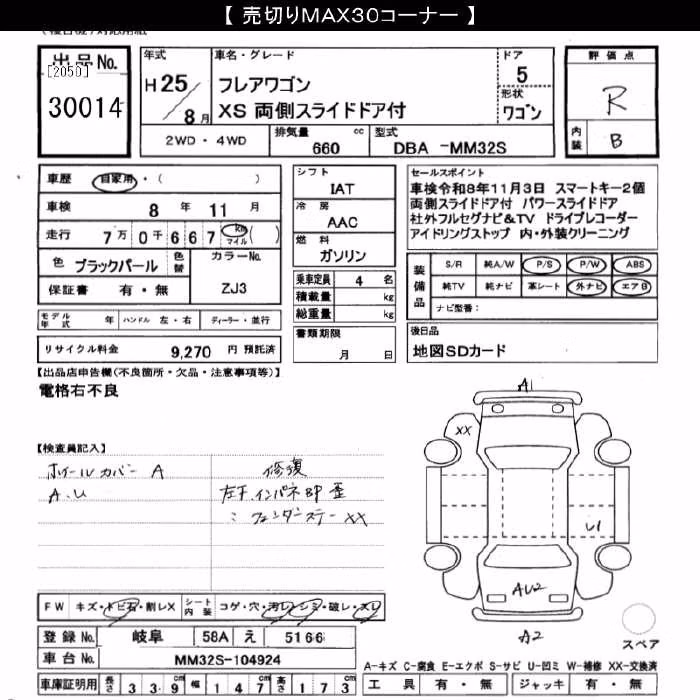 【 売切りMAX30コーナー 】
出品No.
[2050]
30014
年式
H 25
8 月
車名・グレード
フレアワゴン
XS 両側スライドドア付
ドア
5
形状
ワゴン
2WD・4WD
排気量
660 cc
型式
DBA -MM32S
評価点
R
内装
B
車歴 自家用・( )
車検 8 年 11 月
走行 7万 0千 6 6 7 km マイル ( )
色 ブラックパール
色替
カラーNo.
ZJ3
保証書 有・無
シフト
IAT
冷房
AAC
燃料
ガソリン
乗車定員 4 名
積載量 kg
総重量 kg
書類期限
月 日
モデル年式 年 ハンドル 左・右 ディーラー・並行
リサイクル料金 9,270 円 預託済
セールスポイント
車検令和8年11月3日 スマートキー2個
両側スライドドア付 パワースライドドア
社外フルセグナビ&TV ドライブレコーダー
アイドリングストップ 内・外装クリーニング
装備品
S/R 純A/W P/S P/W ABS
純TV 純ナビ 革シート 外ナビ エアB
ナビ型番:
後日品
地図SDカード
【出品店申告欄(不良箇所・欠品・注意事項等)】
電格右不良
【検査員記入】
ホイールカバー A
A.U
修復
左F.インパネBP 歪
: フェンダーステー XX
A1
XX
U1
AU2
A2
スペア
FW キズ・トビ石・割レX
シート内装 コゲ・穴・汚レ・シミ・破レ・スレ
登録No. 岐阜 58A え 5166
車台No. MM32S-104924
車庫証明用 長さ 3 3 9 cm 幅 1 4 7 cm 高さ 1 7 3 cm
A-キズ C-腐食 E-エクボ S-サビ U-凹ミ W-補修 XX-交換済
工具 有・無 ジャッキ 有・無